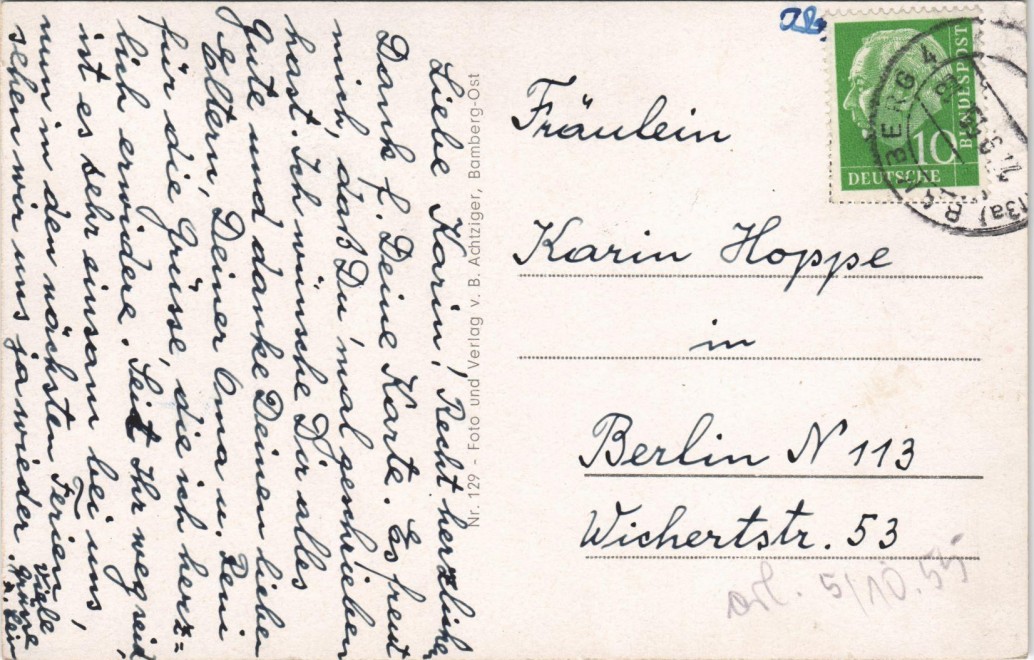 Liebe Karin! Recht herzlichen
Dank f. Deine Karte. Es freut
mich, daß Du 'mal geschrieben
hast. Ich wünsche Dir alles
Gute und danke Deinen lieben
Eltern, Deiner Oma u. Reni
für die Grüsse, die ich herz=
lich erwidere. Seit Ihr weg seid,
ist es sehr einsam bei uns,
nun in den nächsten Ferien
sehen wir uns ja wieder.
Viele
Grüsse
Nr. 129 - Foto und Verlag v. B. Achtziger, Bamberg-Ost
Fräulein
Karin Hoppe
in
Berlin N 113
Wichertstr. 53
5/10.55
10
DEUTSCHE
BUNDESPOST
(13a) BAMBERG 4